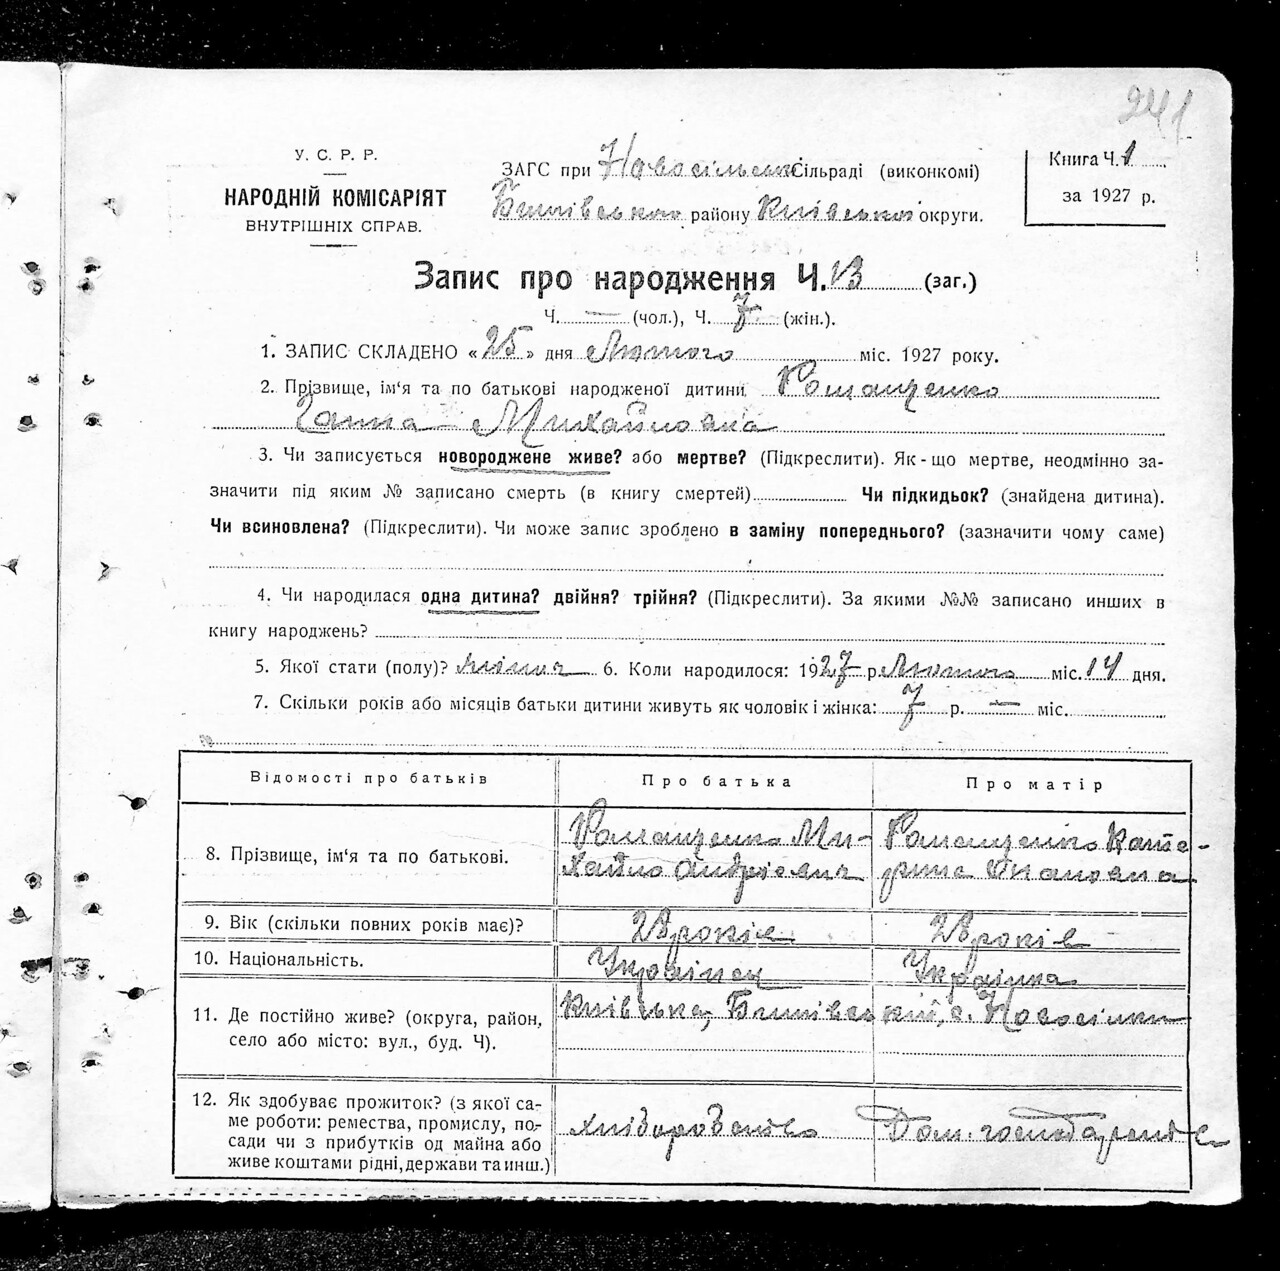 241
У. С. Р. Р.
НАРОДНІЙ КОМІСАРІЯТ
ВНУТРІШНІХ СПРАВ.
ЗАГС при Новосільській Сільраді (виконкомі)
району Київської округи.
Книга Ч. 1
за 1927 р.
Запис про народження Ч. 13 (заг.)
Ч. — (чол.), Ч. 7 (жін.).
1. ЗАПИС СКЛАДЕНО «25» дня Лютого міс. 1927 року.
2. Прізвище, ім'я та по батькові народженої дитини Ромащенко
Ганна Михайловна
3. Чи записується новороджене живе? або мертве? (Підкреслити). Як-що мертве, неодмінно за-
значити під яким № записано смерть (в книгу смертей) Чи підкидьок? (знайдена дитина).
Чи всиновлена? (Підкреслити). Чи може запис зроблено в заміну попереднього? (зазначити чому саме)
4. Чи народилася одна дитина? двійня? трійня? (Підкреслити). За якими №№ записано инших в
книгу народжень?
5. Якої стати (полу)? жіноч 6. Коли народилося: 1927 р. Лютого міс. 14 дня.
7. Скільки років або місяців батьки дитини живуть як чоловік і жінка: 7 р. — міс.
Відомості про батьків
Про батька
Про матір
8. Прізвище, ім'я та по батькові.
Ромащенко Ми-
хайло Андрієвич
Ромащенко Кате-
рина
9. Вік (скільки повних років має)?
28 років
28 років
10. Національність.
Українец
Українка
11. Де постійно живе? (округа, район,
село або місто: вул., буд. Ч).
Київська, с. Новосілки
12. Як здобуває прожиток? (з якої са-
ме роботи: ремества, промислу, по-
сади чи з прибутків од майна або
живе коштами рідні, держави та инш.)
хліборобство
Дом. господарство